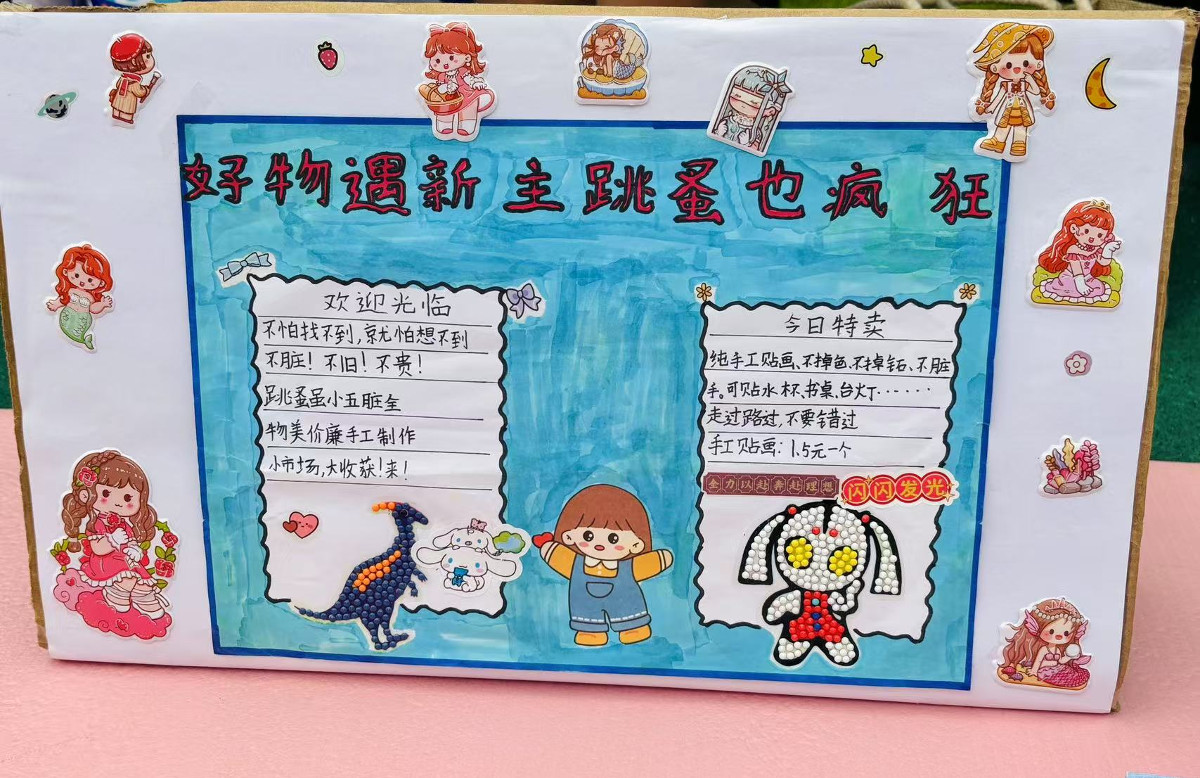 好物遇新主跳蚤也疯狂
欢迎光临
不怕找不到,就怕想不到
不脏!不旧!不贵!
跳蚤虽小五脏全
物美价廉手工制作
小市场,大收获!来!
今日特卖
纯手工贴画、不掉色、不掉钻、不脏
手。可贴水杯、书桌、台灯······
走过路过,不要错过
手工贴画:1.5元一个
全力以赴奔赴理想
闪闪发光